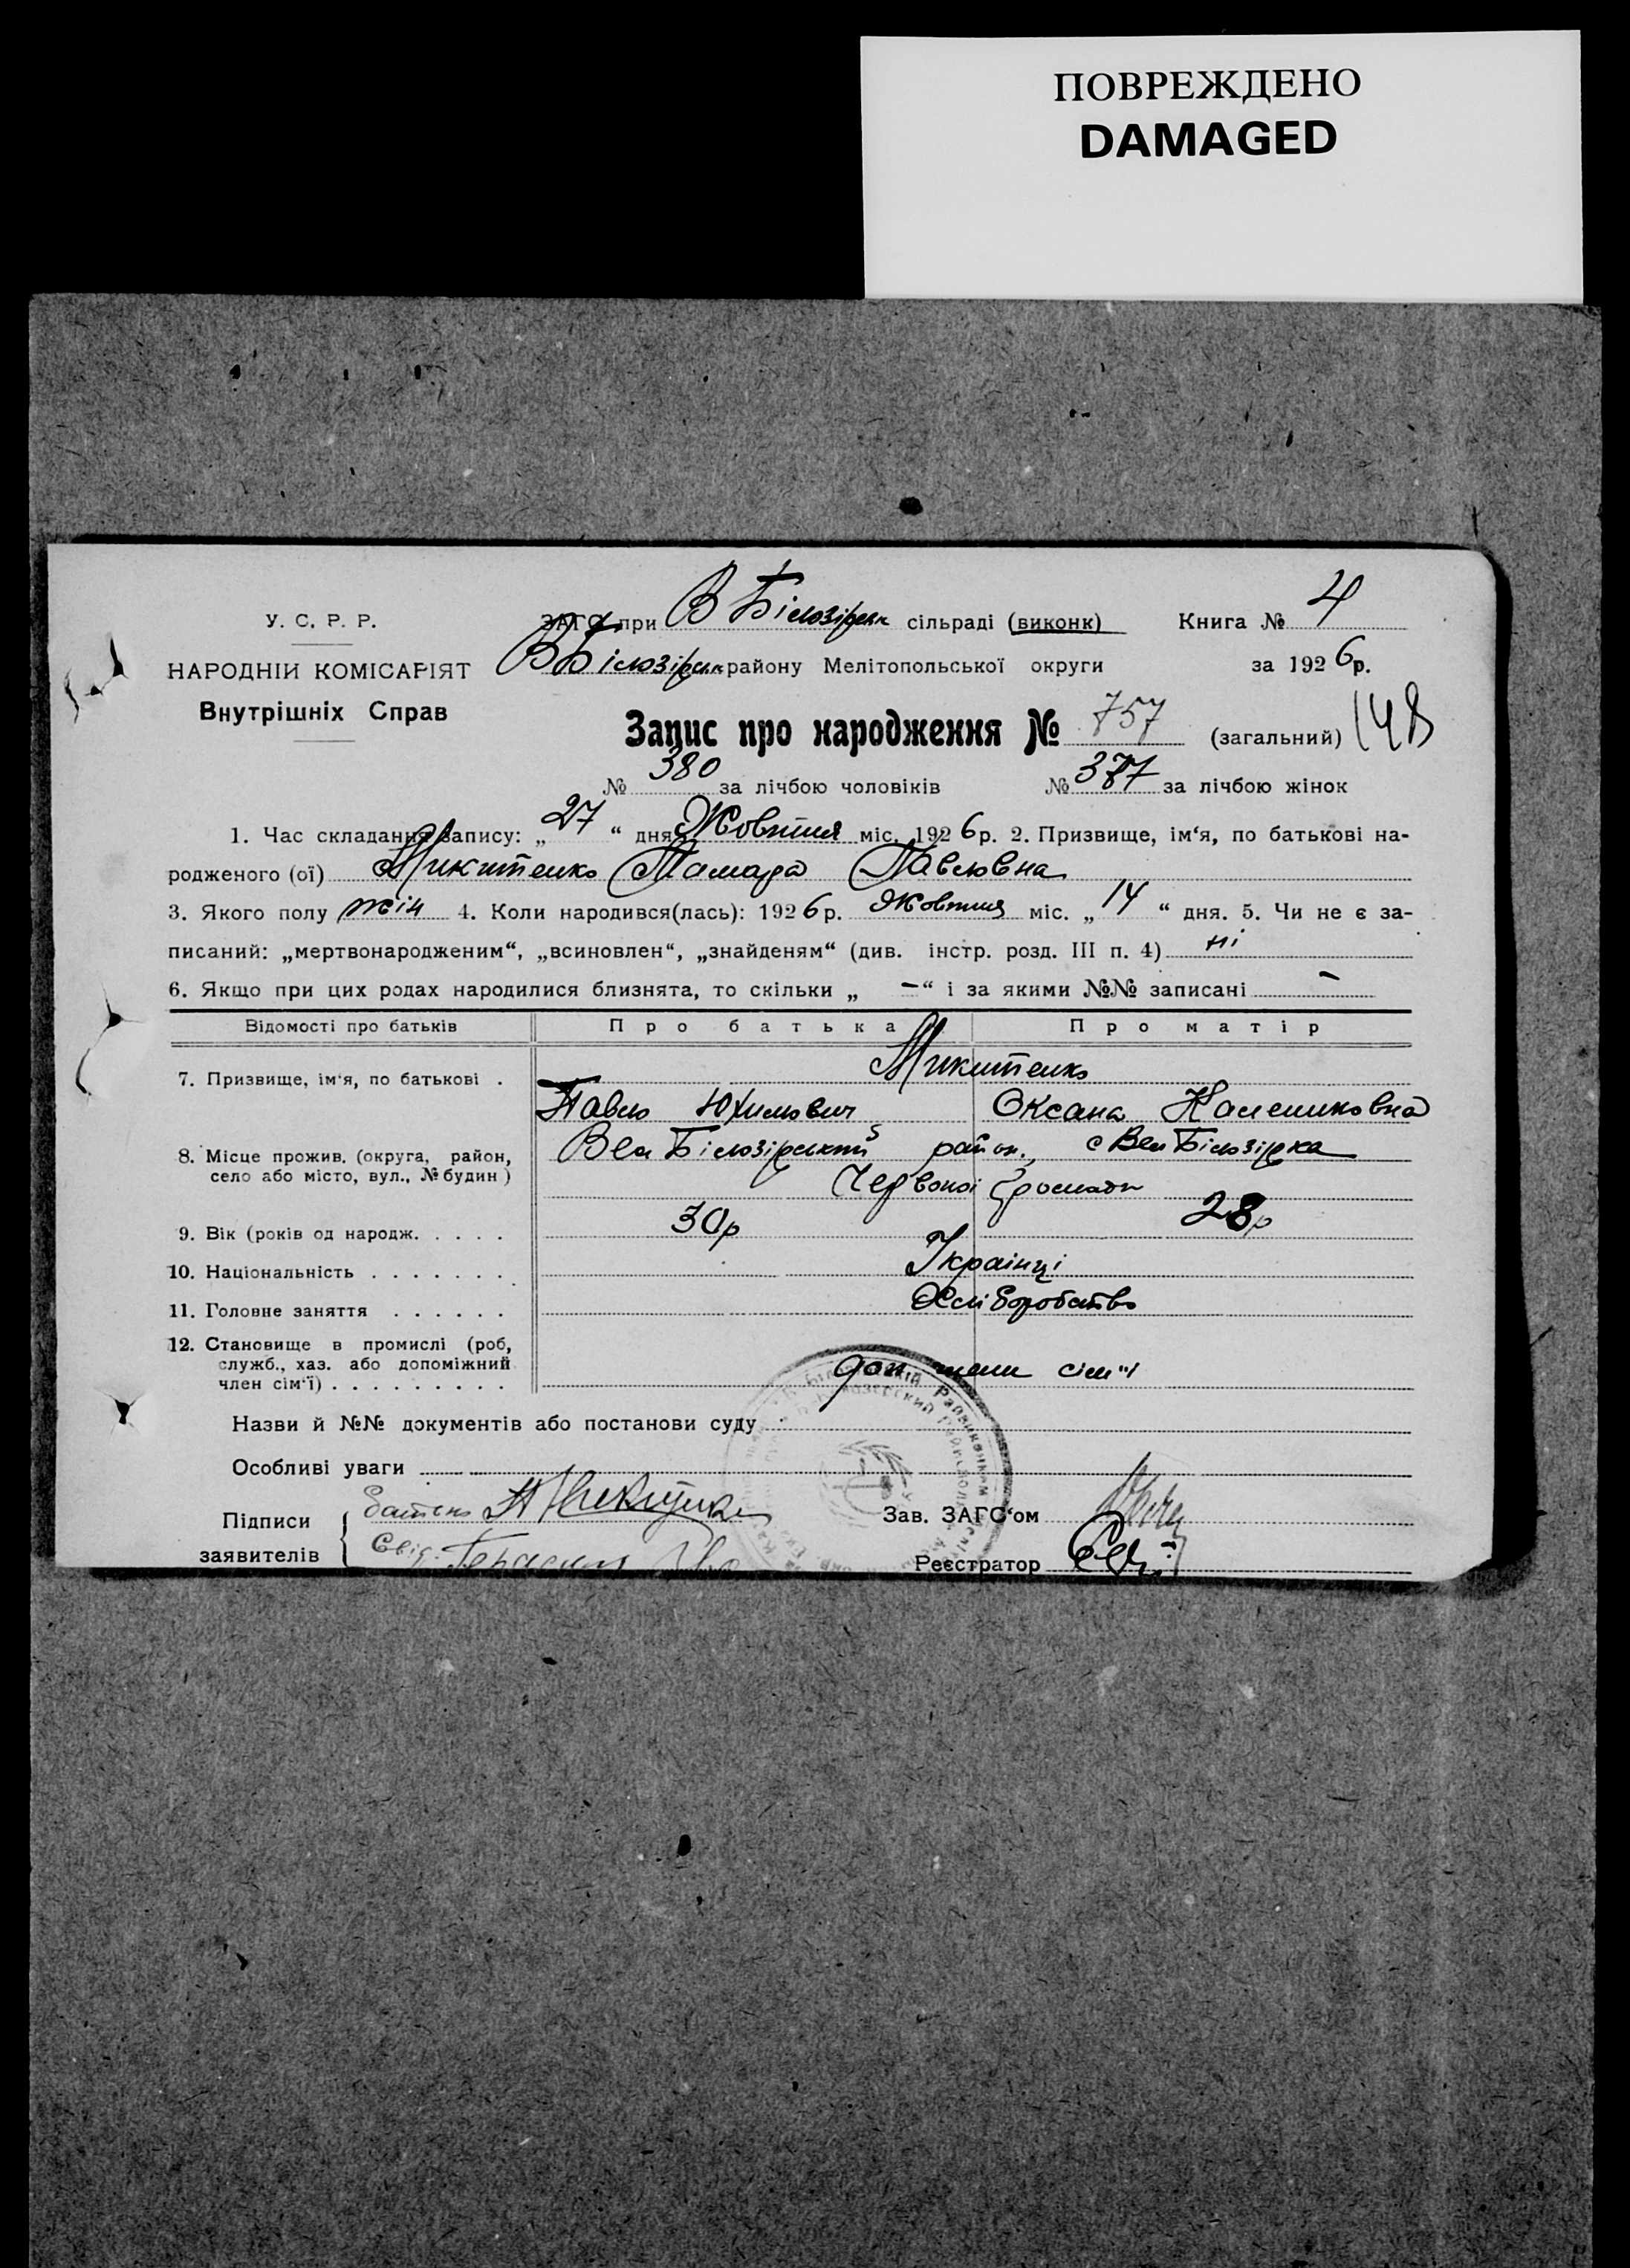 ПОВРЕЖДЕНО
DAMAGED
У. С. Р. Р.
ЗАГС при В Білозірськ сільраді (виконк) Книга № 4
НАРОДНІЙ КОМІСАРІЯТ
ВБілозірськ району Мелітопольської округи за 1926р.
Внутрішніх Справ
Запис про народження № 757 (загальний) 148
№ 380 за лічбою чоловіків № 377 за лічбою жінок
1. Час складання запису: „27“ дня Жовтня міс. 1926р. 2. Призвище, ім‘я, по батькові на-
родженого (ої) Микитенко Тамара Павловна
3. Якого полу жін 4. Коли народився(лась): 1926р. Жовтня міс. „14“ дня. 5. Чи не є за-
писаний: „мертвонародженим“, „всиновлен“, „знайденям“ (див. інстр. розд. III п. 4) ні
6. Якщо при цих родах народилися близнята, то скільки „ — “ і за якими №№ записані —
Відомості про батьків Про батька Про матір
Микитенко
7. Призвище, ім‘я, по батькові .
Павло Юхимович Оксана
8. Місце прожив. (округа, район, Вел Білозірський район., с Вел Білозірка
село або місто, вул., № будин)
Червоної Громади
9. Вік (років од народж. . . . . 30р 28р
10. Національність . . . . . . . Українці
11. Головне заняття . . . . . . Хліборобство
12. Становище в промислі (роб,
служб., хаз. або допоміжний
член сім‘ї) . . . . . . . . . доп член сім"ї
Назви й №№ документів або постанови суду
Особливі уваги
Підписи батько Зав. ЗАГС‘ом
заявителів Свід. Реєстратор